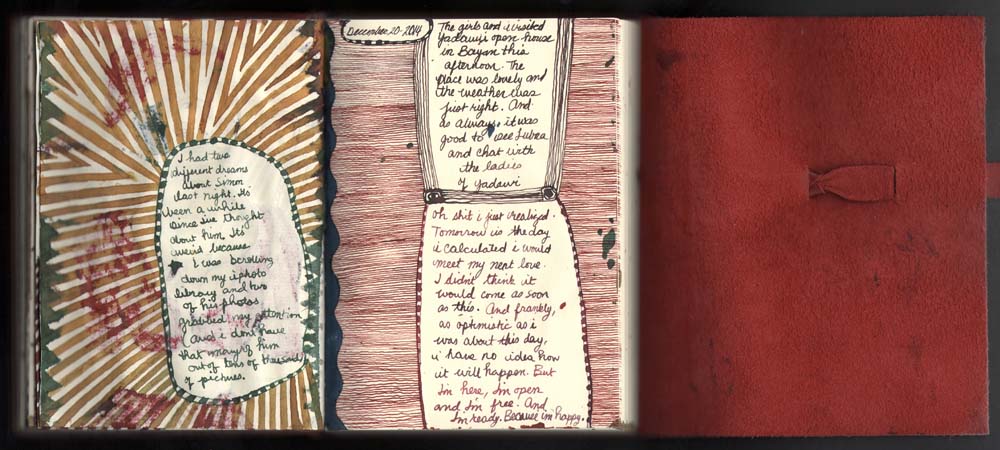 I had two
different dreams
about Simm
last night. Its
been a while
since ive thought
about him. Its
weird because
I was scrolling
down my iphoto
library and two
of his photos
grabbed my attention
(and i dont have
that many of him
out of tens of thousands
of pictures.
December 20-2014
The girls and i visited
Yadawi's open house
in Bayan this
afternoon. The
place was lovely and
the weather was
just right. And
as always, it was
good to see Lubna
and chat with
the ladies
of Yadawi
Oh shit i just realized.
Tomorrow is the day
i calculated i would
meet my next love.
I didn't think it
would come as soon
as this. And frankly,
as optimistic as i
was about this day,
i have no idea how
it will happen. But
Im here, Im open
and Im free. And
Im ready. Because im happy.